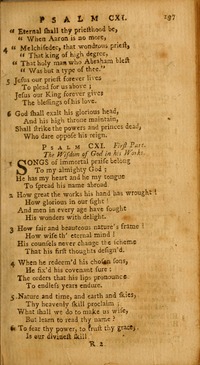 PSALM CXI. 197
" Eternal shall thy priesthood be,
" When Aaron is no more,
4 " Melchisedec, that wondrous priest,
" That king of high degree,
" That holy man who Abraham blest
" Was but a type of thee."
5 Jesus our priest forever lives
To plead for us above ;
Jesus our King forever gives
The blessings of his love.
6 God shall exalt his glorious head,
And his high throne maintain,
Shall strike the powers and princes dead,
Who dare oppose his reign.
PSALM CXI. First Part.
The Wisdom of God in his Works.
1 SONGS of immortal praise belong
To my almighty God ;
He has my heart and he my tongue
To spread his name abroad
2 How great the works his hand has wrought !
How glorious in our sight !
And men in every age have sought
His wonders with delight.
3 How fair and beauteous nature's frame !
How wise th' eternal mind !
His counsels never change the scheme
That his first thoughts design'd.
4 When he redeem'd his chosen sons,
He fix'd his covenant sure :
The orders that his lips pronounce
To endless years endure.
5 Nature and time, and earth and skies,
Thy heavenly skill proclaim ;
What shall we do to make us wise,
But learn to read thy name ?
6 To fear thy power, to trust thy grace,
Is our divinest skill
R 2